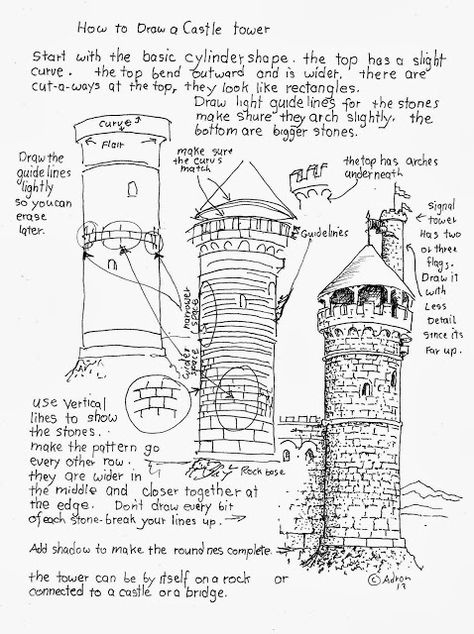 How to Draw a Castle tower
Start with the basic cylinder shape. the top has a slight
curve. the top bend outward and is wider. there are
cut-a-ways at the top, they look like rectangles.
Draw light guidelines for the stones
make shure they arch slightly. the
bottom are bigger stones.
Curve
Flair
Draw the
guide lines
lightly
so you can
erase
later.
make sure
the curvs
match
the top has arches
underneath
Guidelines
Signal
tower
Has two
or three
flags.
Draw it
with
Less
Detail
Since its
far up.
narrower
space
wider
space
use vertical
lines to show
the stones.
make the pattern go
every other row.
they are wider in
the middle and closer together at
the edge. Don't draw every bit
of each stone-break your lines up.
Rock base
Add shadow to make the roundnes complete.
the tower can be by itself on a rock or
connected to a castle or a bridge.
© Adron
13